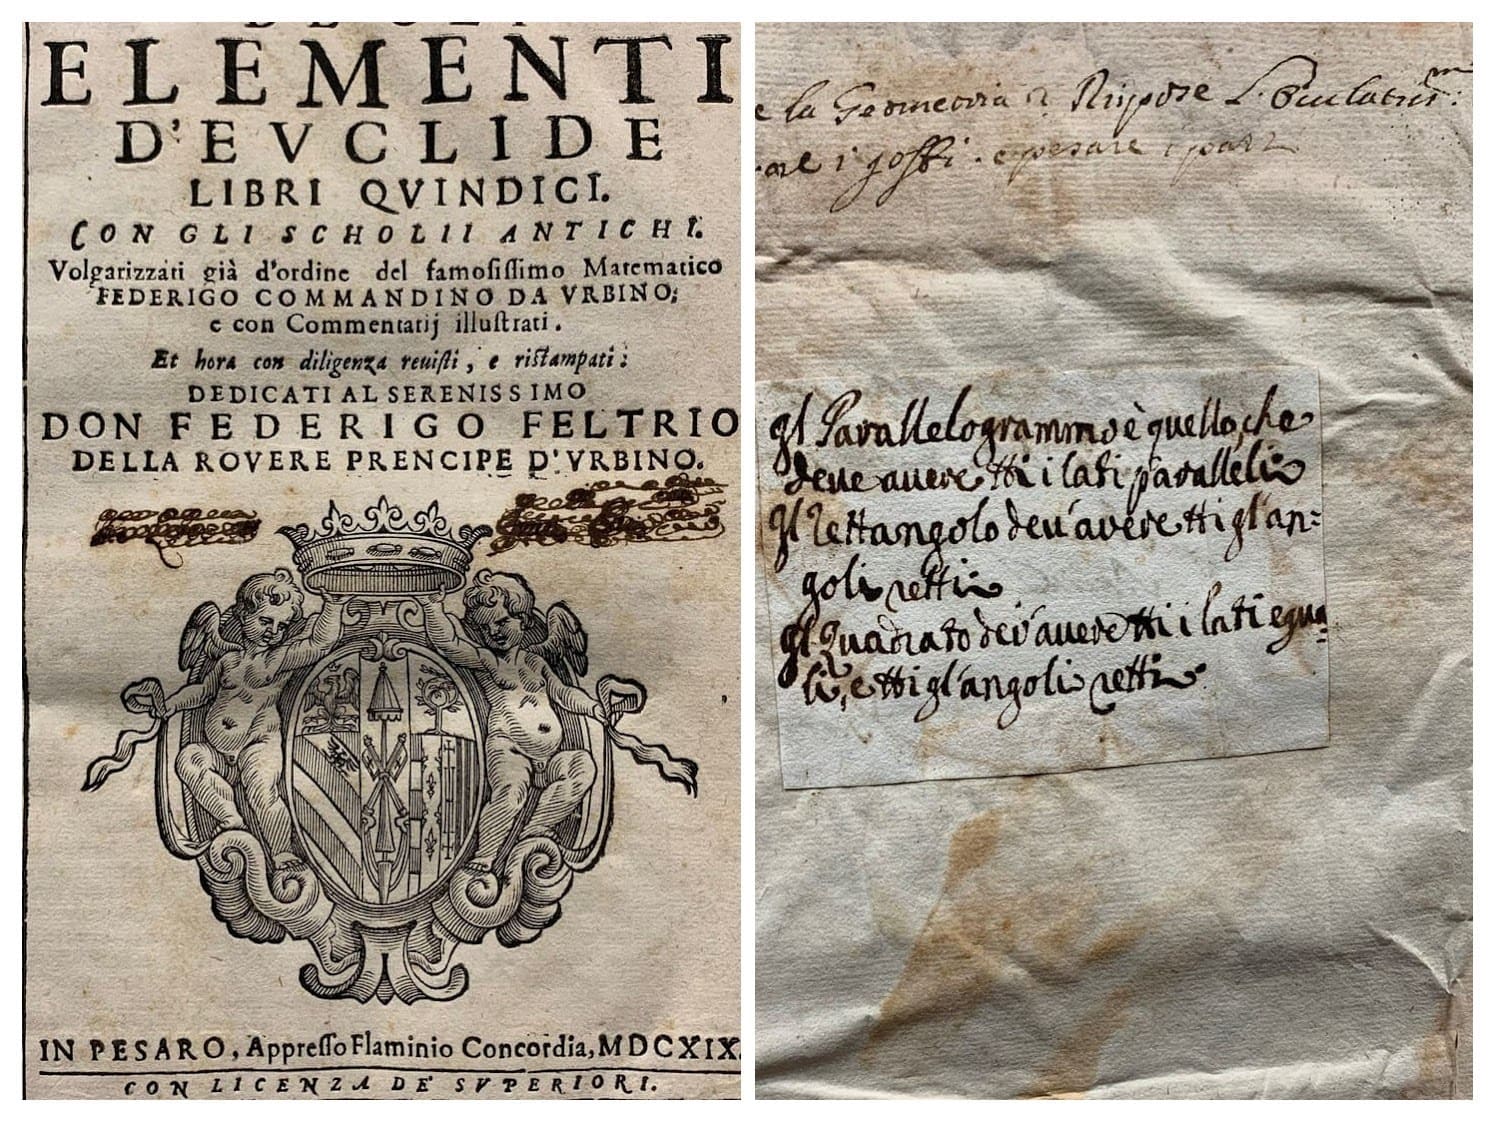 ELEMENTI
D'EVCLIDE
LIBRI QVINDICI.
CON GLI SCHOLII ANTICHI.
Volgarizzati già d'ordine del famosissimo Matematico
FEDERIGO COMMANDINO DA VRBINO;
e con Commentarij illustrati.
Et hora con diligenza reuisti, e ristampati:
DEDICATI AL SERENISSIMO
DON FEDERIGO FELTRIO
DELLA ROVERE PRENCIPE D'VRBINO.
IN PESARO, Appresso Flaminio Concordia, MDCXIX.
CON LICENZA DE' SVPERIORI.
e la Geometria Rispose
i goffi. e pesare i
gl Parallelogrammo è quello, che
deue auere tti i lati paralleli
gl Rettangolo deu'avere tti gl'an=
goli retti
gl Quadrato dev'auere tti i lati egua=
li, e tti gl'angoli retti